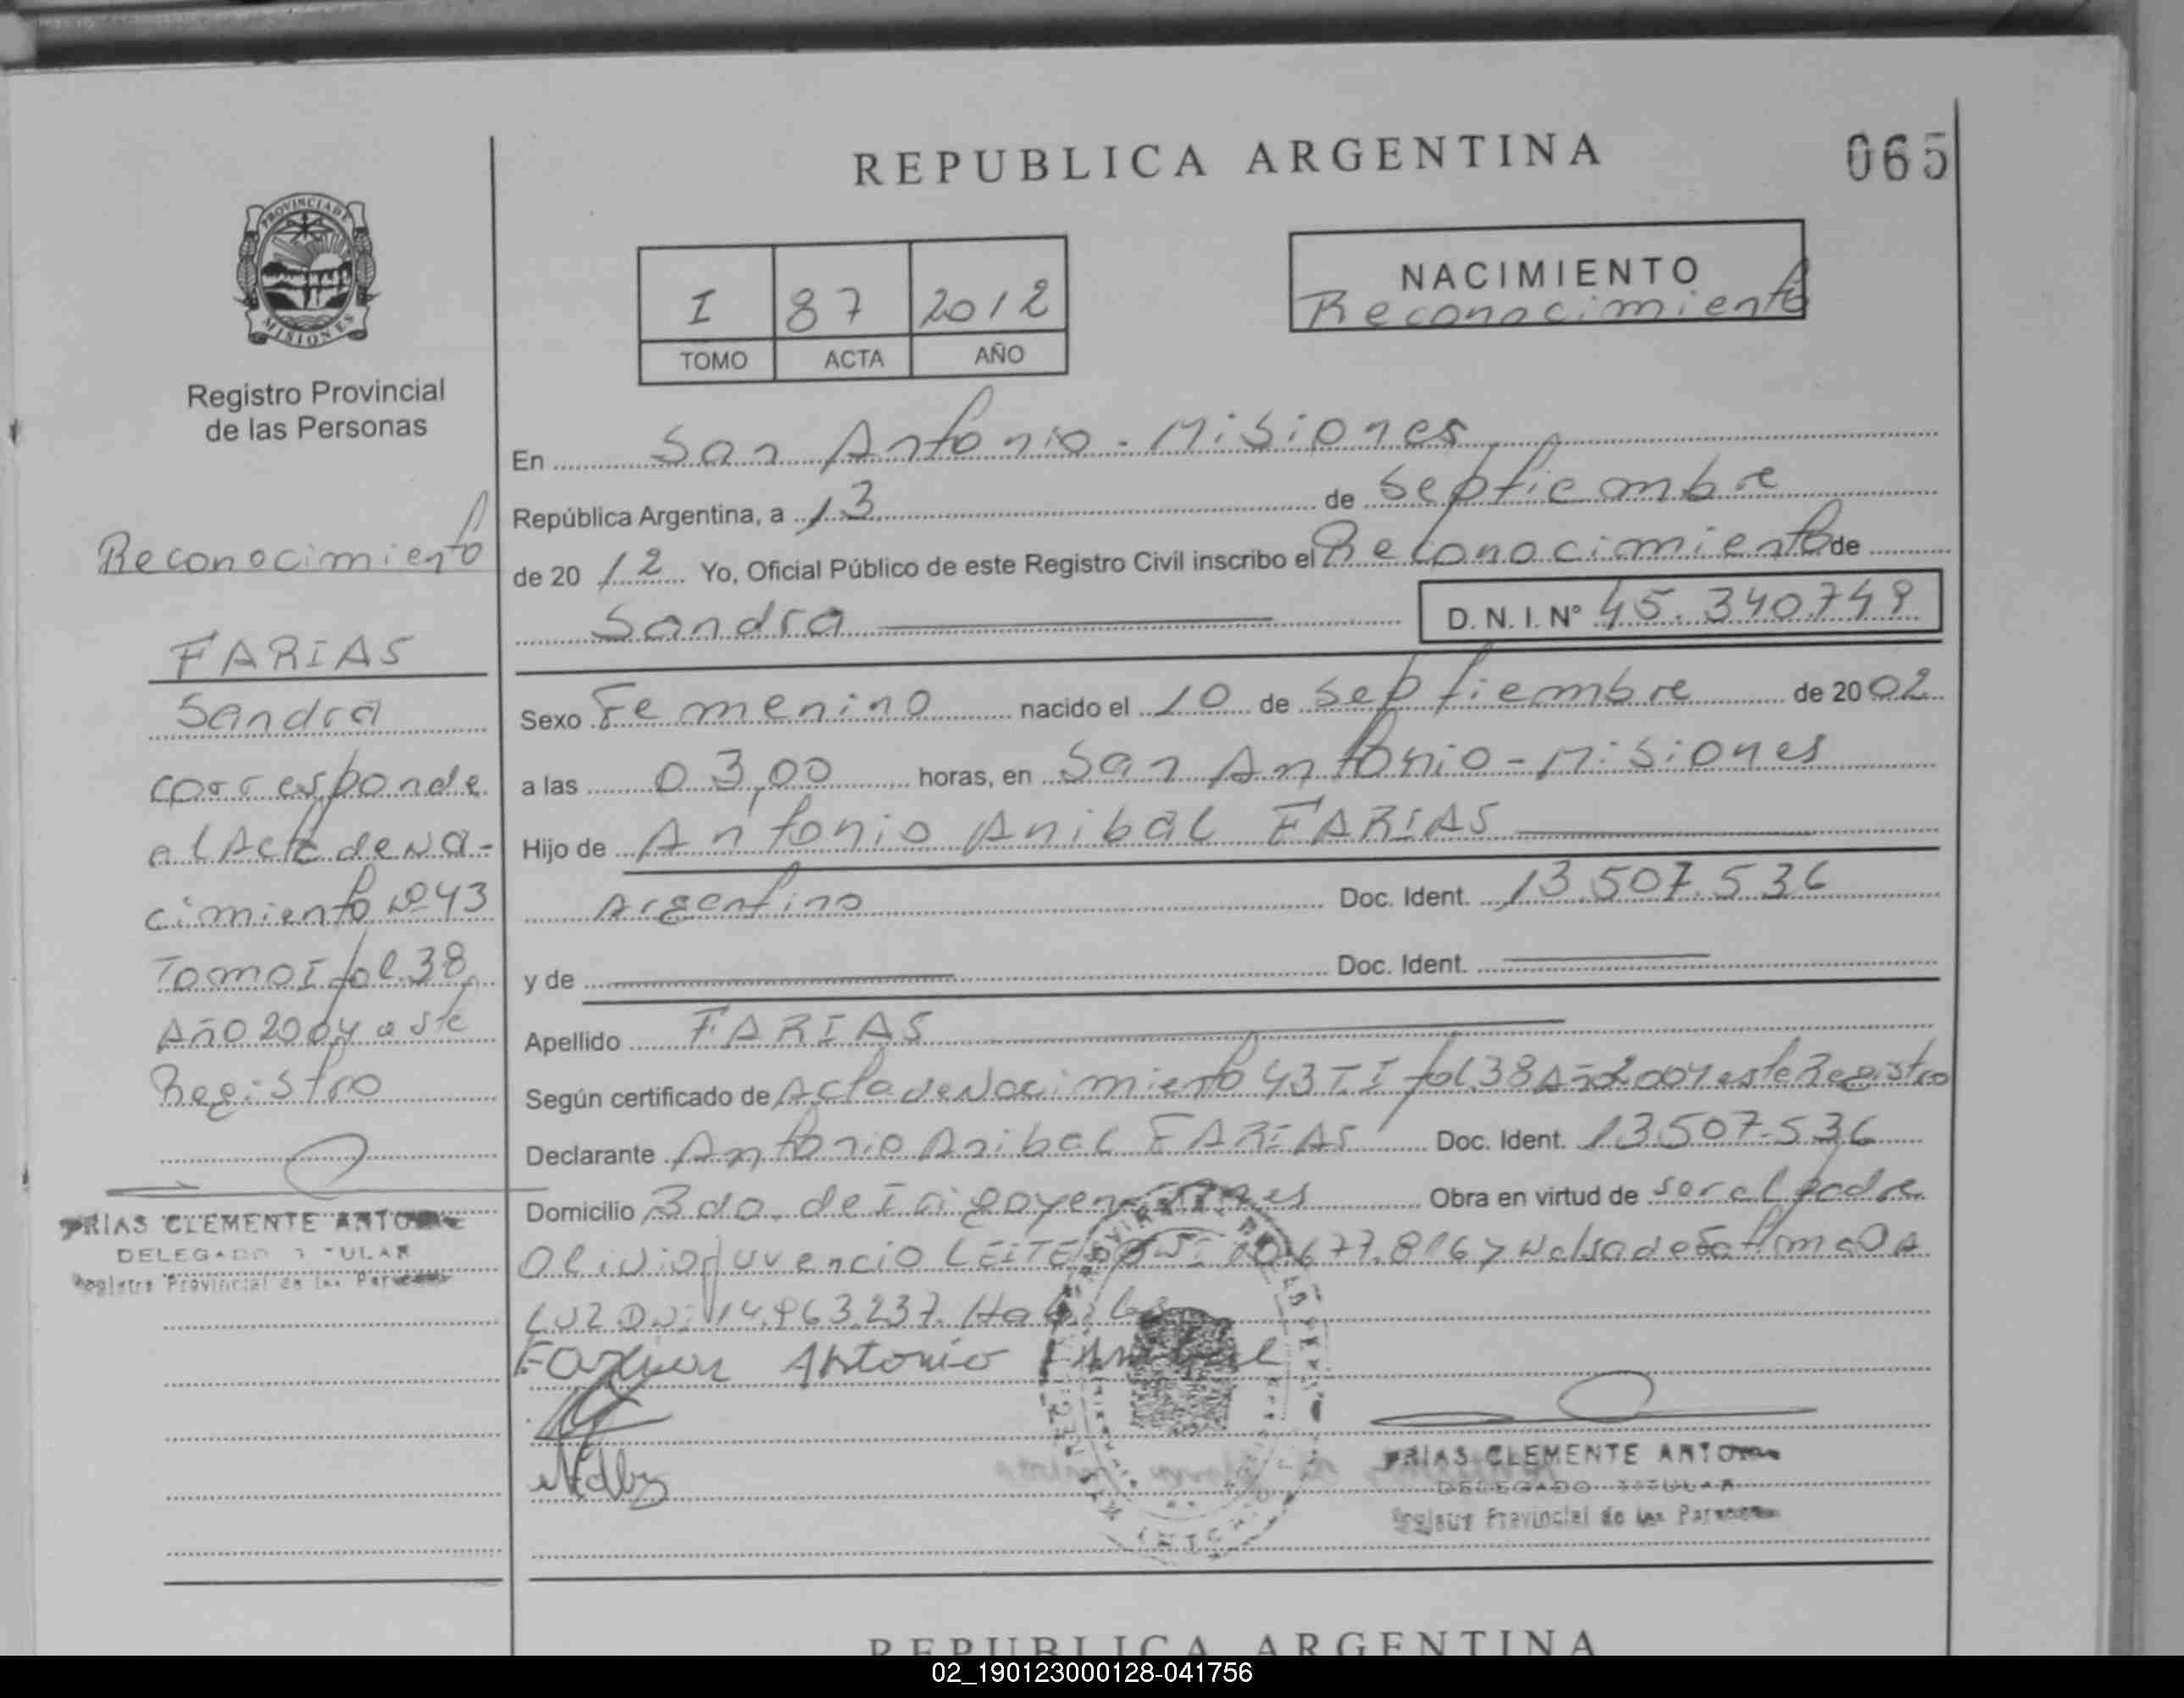 REPUBLICA ARGENTINA
065
PROVINCIA DE
MISIONES
Registro Provincial
de las Personas
I 87 2012
TOMO ACTA AÑO
NACIMIENTO
Reconocimiento
Reconocimiento
FARIAS
Sandra
corresponde
al Acta de Na-
cimiento Nº 43
Tomo I fol. 38
Año 2004 este
Registro
FRIAS CLEMENTE ANTONIO
DELEGADO TITULAR
Registro Provincial de las Personas
En San Antonio - Misiones
República Argentina, a 13 de Septiembre
de 20 12 Yo, Oficial Público de este Registro Civil inscribo el Reconocimiento de
Sandra D. N. I. Nº 45.340.749
Sexo Femenino nacido el 10 de Septiembre de 20 02
a las 03,00 horas, en San Antonio - Misiones
Hijo de Antonio Anibal FARIAS
Argentino Doc. Ident. 13.507.536
y de Doc. Ident.
Apellido FARIAS
Según certificado de Acta de Nacimiento 43 T I fol. 38 Año 2004 este Registro
Declarante Antonio Anibal FARIAS Doc. Ident. 13.507.536
Domicilio Bdo. de Irigoyen Obra en virtud de ser el padre
Olivio Juvencio LEITE 677.816 y de
LUZ DNI 14.963.237. Habiles
Antonio Anibal
FRIAS CLEMENTE ANTONIO
DELEGADO TITULAR
Registro Provincial de las Personas
REPUBLICA ARGENTINA
02_190123000128-041756